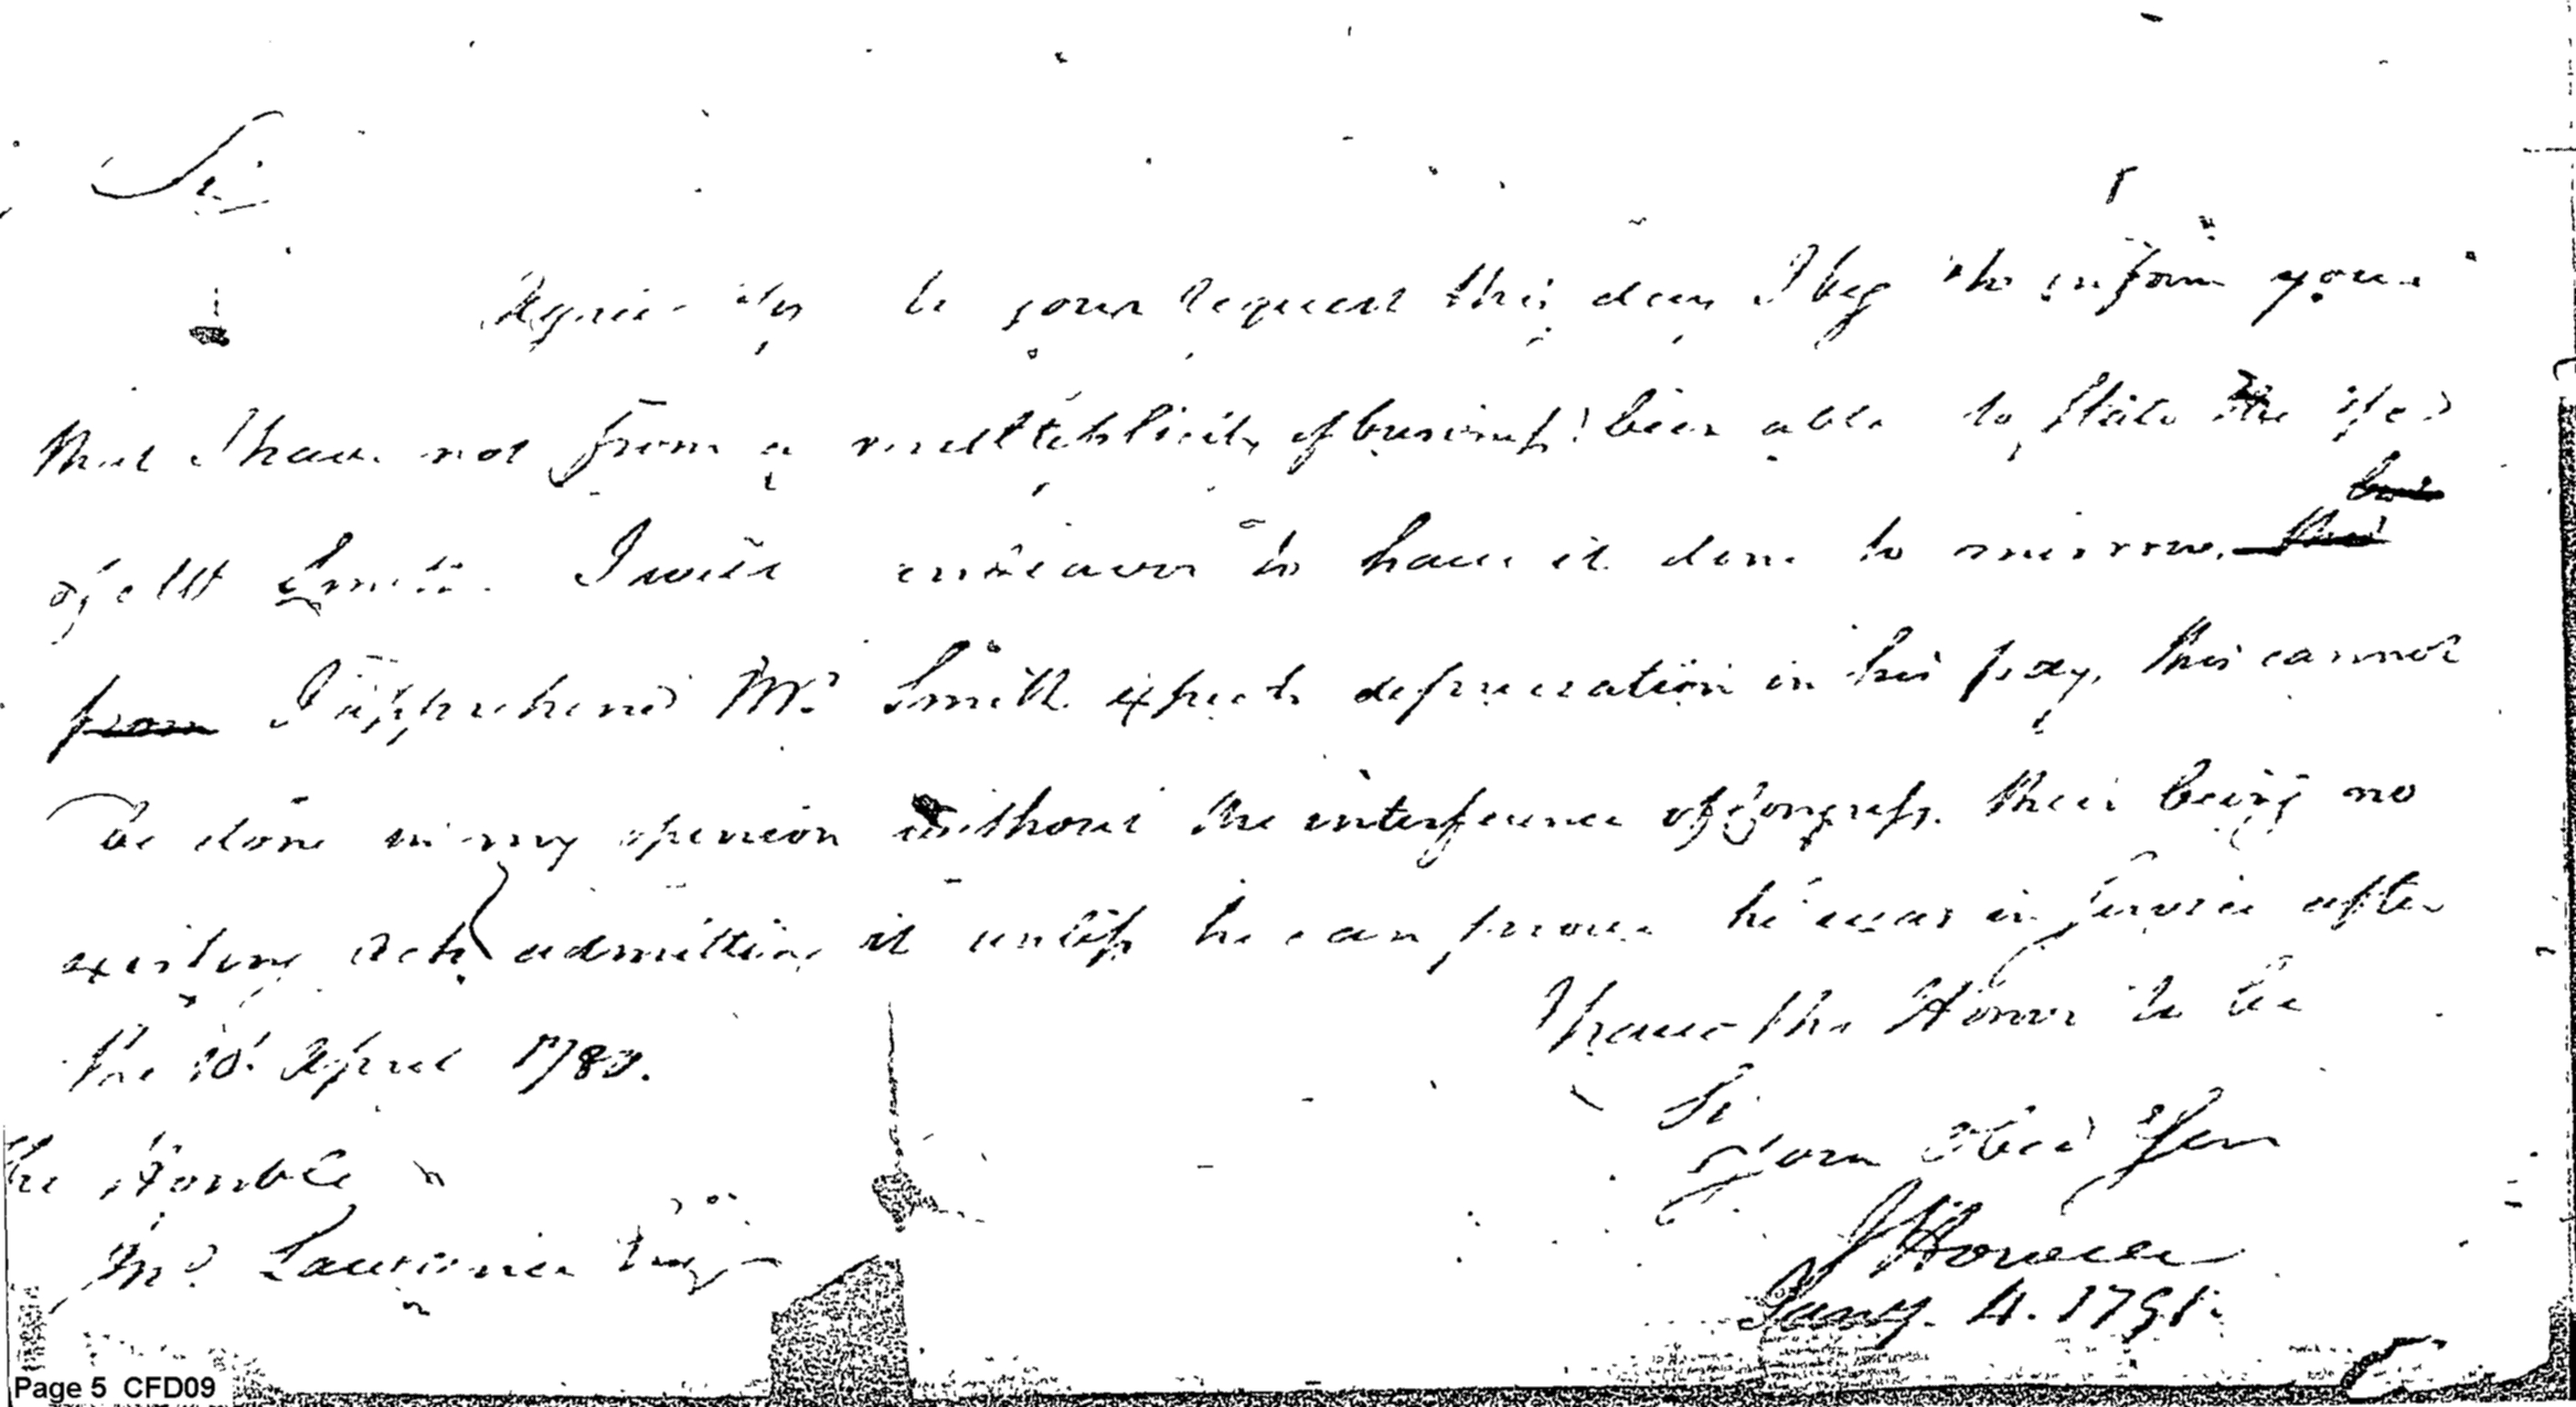 Sir
Agreeably to your request this day I beg to inform you
that I have not from a multiplicity of business been able to state the
of Smith. I will endeavor to have it done to morrow. that but
from I apprehend Mr. Smith expects depreciation in his pay, this cannot
be done in my opinion without the interference of Congress. their being no
existing Acts admitting it unless he can prove he was in service after
the 10 April 1780.
I have the Honor to be
Sir
Your Obed Ser
J Howell
Jany. 4. 1791.
The Honble
Mr. Lawrence Esq
Page 5 CFD09